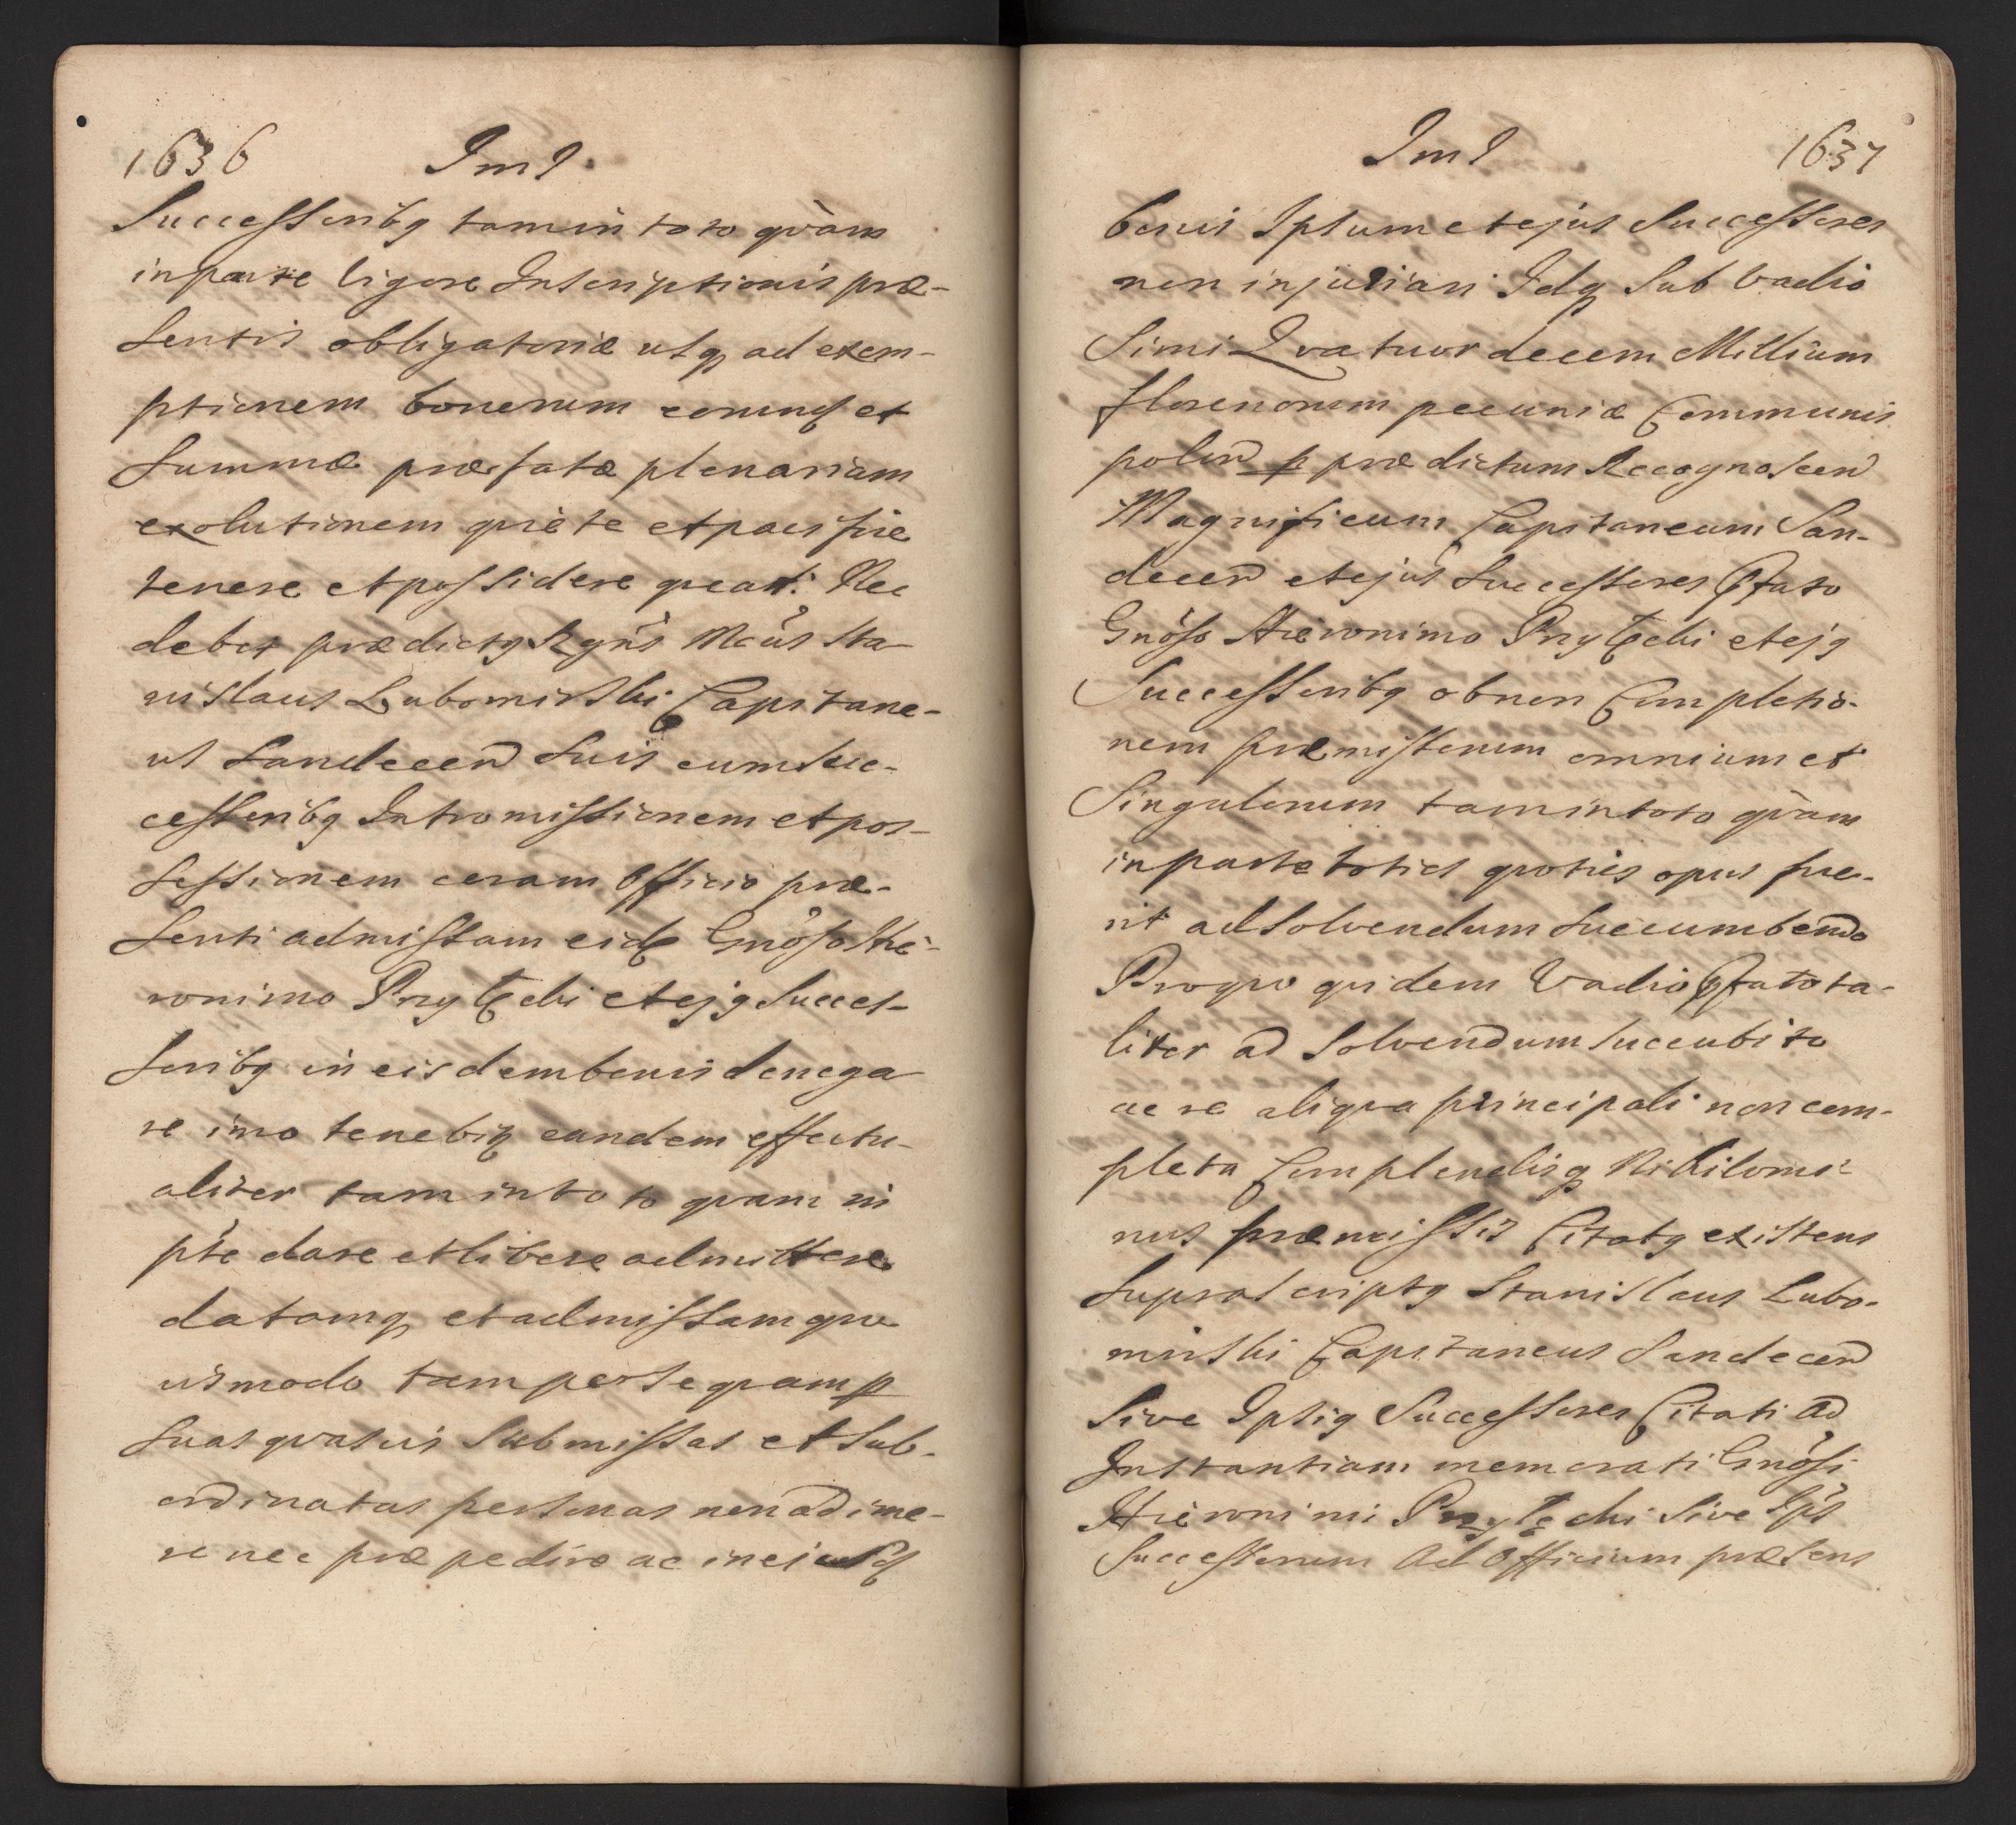 1636 Im I.
Successoribq tam in toto qvàm
in parte vigore Inscriptionis præ-
sentis obligatoriæ usq ad exem-
ptionem bonorum eorundq et
Summæ præfatæ plenariam
exolutionem qviete et pacifice
tenere et possidere qveat: Nec
debet prædictq Rgn̄s Mcūs Sta-
nislaus Lubomirski Capitane-
us Sandecen̄ suis cum suc-
cessoribq Intromissionem et pos-
sessionem coram Officio præ-
senti admissam eidē Gnōso Hie-
ronimo Przyłęcki et ejq Succes-
soribq in eisdem bonis denega-
re imo tenebiꝉ eandem effectu-
aliter tam in toto qvam in
pt̄e dare et libere admittere
datamq et admissam qvo-
vismodo tam per se qvam p
suas qvasvis submissas et sub-
ordinatas personas non adime-
re nec præpedire ac in eisdq
Im I 1637
bonis Ipsum et ejus Successores
non injuriari Idq Sub Vadio
Simi Qvatuordecem Millium
florenorum pecuniæ Communis
polon̄ p prædictum Recognoscen̄
Magnificum Capitaneum San-
decen̄ et ejus Successores Pfato
Gnōso Hieronimo Przyłęcki et ejq
Successoribq ob non Completio-
nem præmissorum omnium et
Singulorum tam in toto qvàm
in parte toties qvoties opus fue-
rit ad solvendum succumbendo
Pro qvo qvidem Vadio Pfato ta-
liter ad Solvendum succubito
ac re aliqva principali non com-
pleta Complendisq Nihilomi-
nus præmissis Citatq existens
Suprascriptq Stanislaus Lubo-
mirski Capitaneus Sandecen̄
Sive Ipsiq Successores Citati ad
Instantiam memorati Gnōsi
Hieronimi Przyłęcki Sive Ip̄s
Successorum Ad Officium præsens